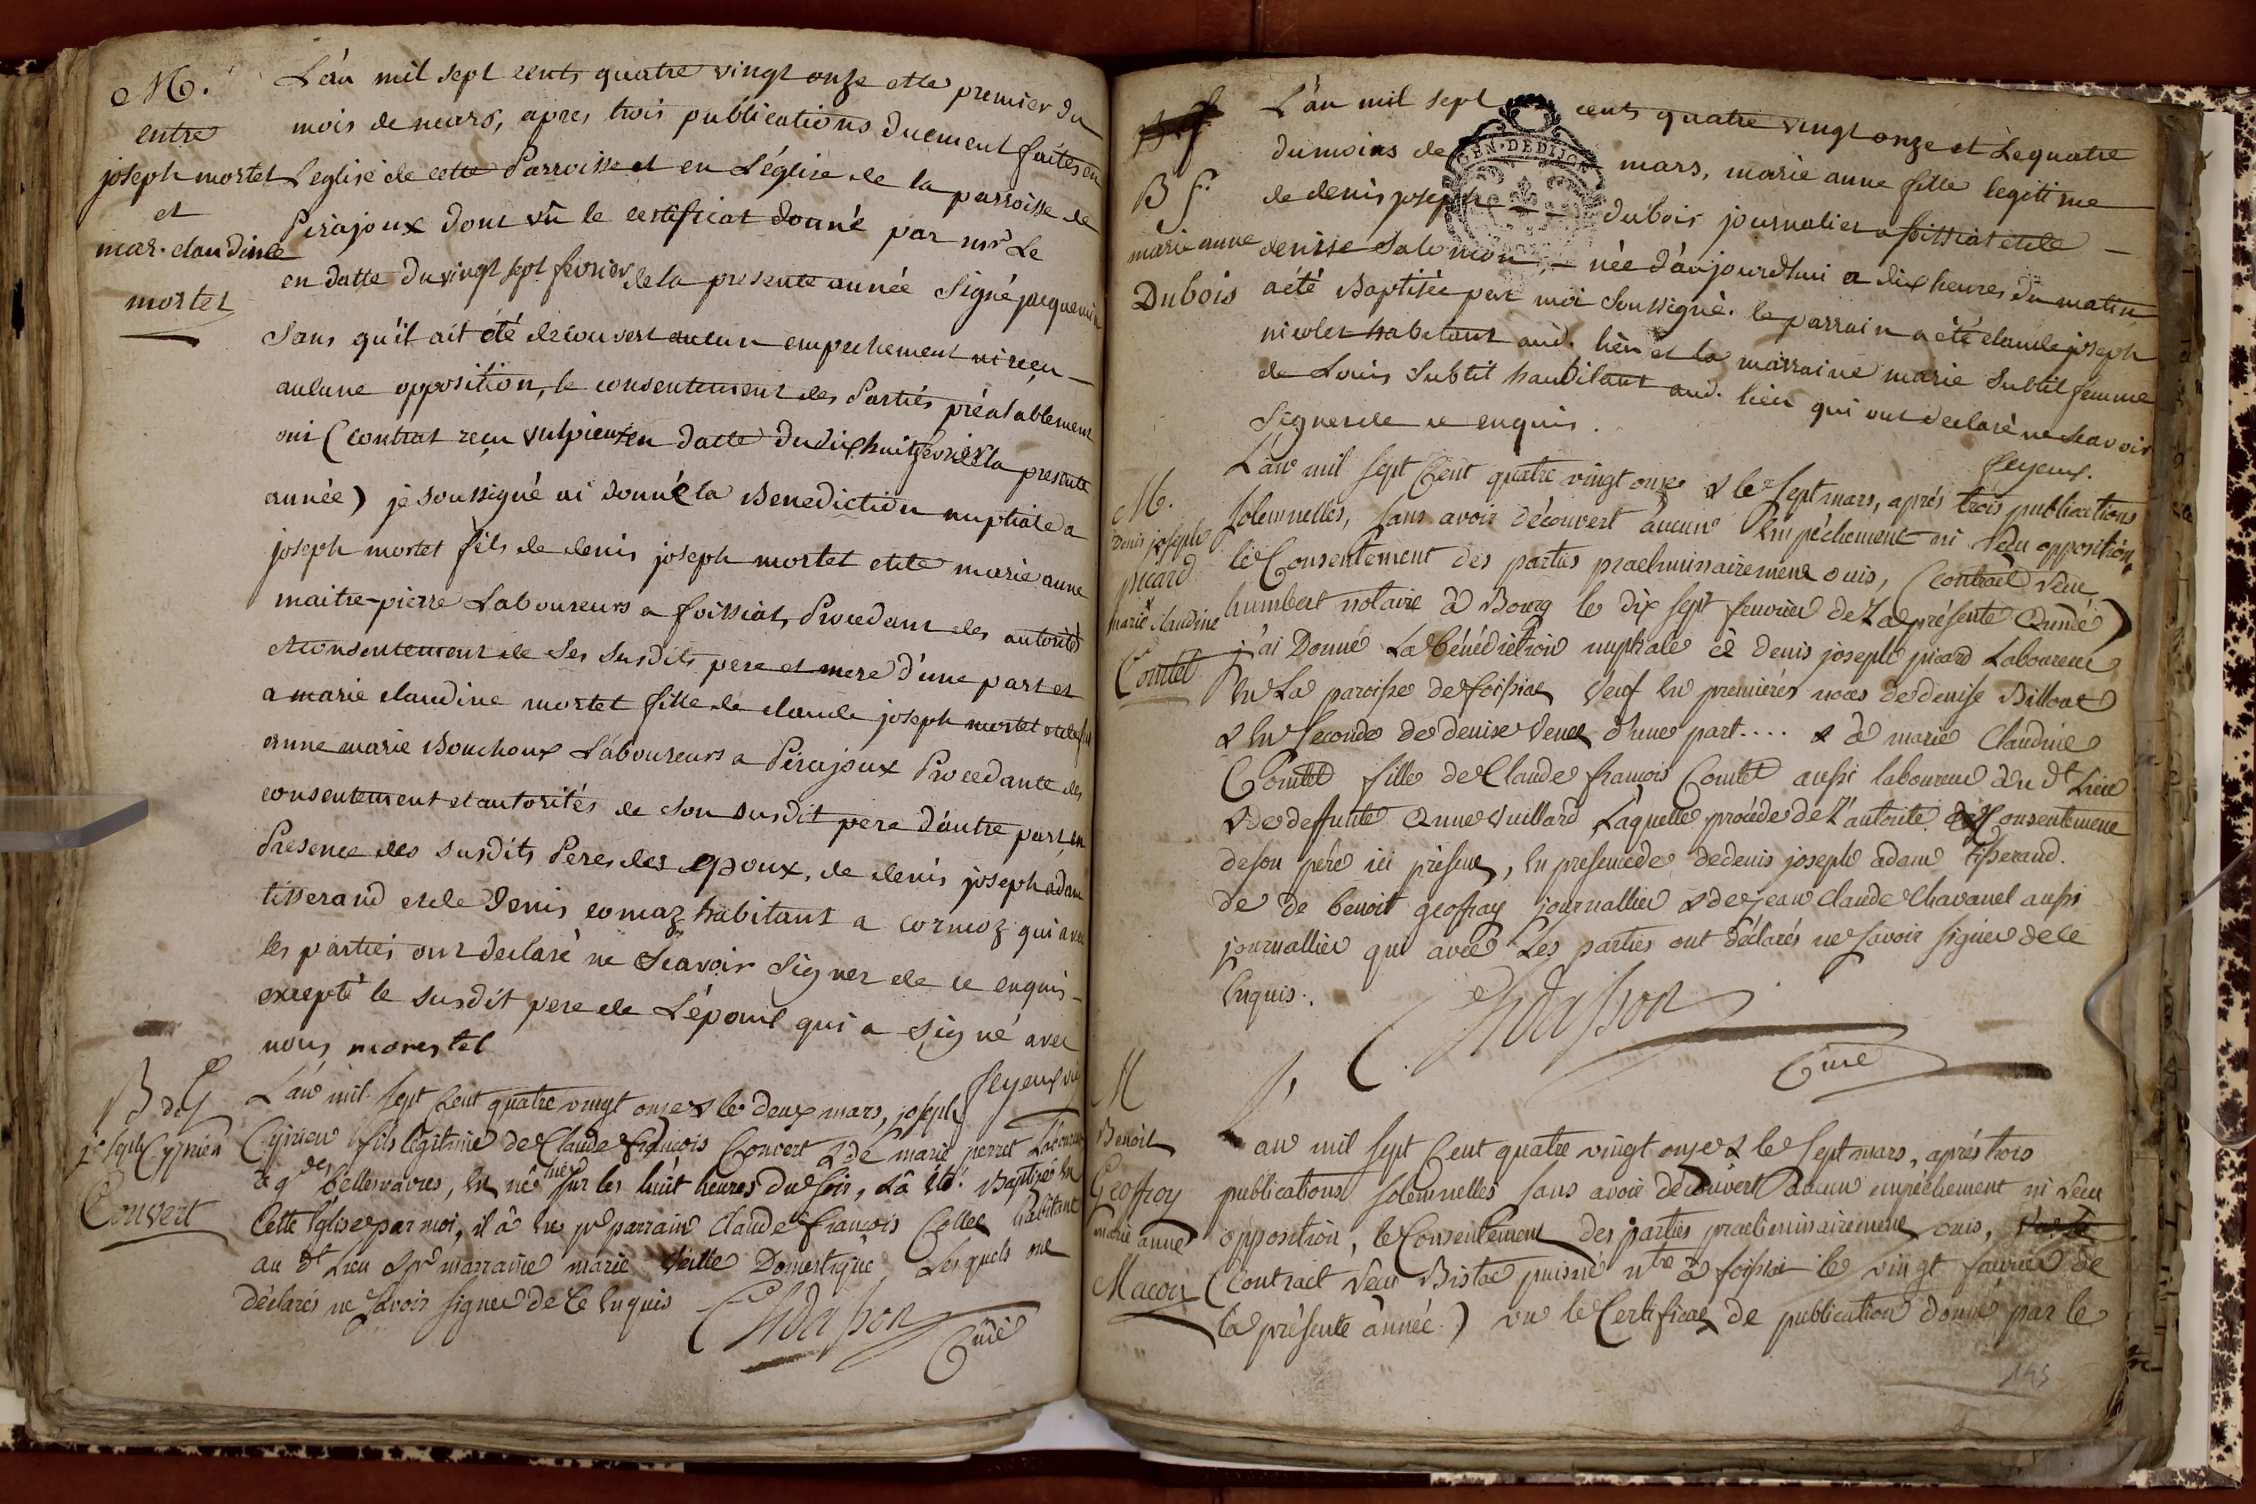 M.
entre
joseph mortet
et
mar. claudine
mortet
L'an mil sept cents quatre vingt onze et le premier du
mois de mars, apres trois publications duement faites en
L'eglise de cette Parroisse et en L'église de la parroisse de
Pirajoux dont vû le certificat donné par mr Le
en datte du vingt sept fevrier de la presente année signé jacquemin
sans qu'il ait été decouvert aucun empechement ni reçu
aucune opposition, le consentement des Parties préalablement
oui (contrat reçu vulpieux en datte du dix huit fevrier de la presente
année) je soussigné ai donné la Benediction nuptiale a
joseph mortet fils de denis joseph mortet et de marie anne
maitre-pierre Laboureurs a foissiat, Procedant des autorités
et consentement de ses susdits pere et mere d'une part et
a marie claudine mortet fille de claude joseph mortet et de
anne marie Bouchoux Laboureurs a Pirajoux Procedante des
consentement et autorités de son susdit pere d'autre part, en
Presence des susdits Peres des epoux, de denis joseph adam
tisserand et de Denis comaz habitant a cormoz qui avec
les parties ont declaré ne scavoir signer de ce enquis
excepté le susdit pere de L'épouse qui a signé avec
nous morestel
feyeux
B du
joseph Cyprien
Convert
L'an mil sept Cent quatre vingt onze & le deux mars, joseph
Cyprien fils légitime de Claude François Convert & de marie perret Laboureur
des bellesvavres, né hier sur les huit heures du soir, a été Baptisé en
Cette Eglise par moi, il a eu pr parrain Claude François Collet habitant
au dt Lieu & pr marraine marie veille Domestique Lesquels ont
déclarés ne savoir signer de Ce Enquis
Chdasson
Curé
B f.
marie anne
Dubois
L'an mil sept cents quatre vingt onze et le quatre
du mois de mars, marie anne fille legitime
de denis joseph dubois journalier a foissiat et de
denise Salomon, née d'aujourdhui a dix heures du matin
a été Baptisée par moi soussigné. le parrain a été claude joseph
nicolet habitant aud. lieu et la marraine marie subtil femme
de Louis subtil haubitant aud. lieu qui ont declaré ne scavoir
signer de ce enquis.
feyeux.
GEN. DE DIJON
M.
Denis joseph
picard
&
marie Claudine
Comtet
L'an mil sept Cent quatre vingt onze & le sept mars, aprés trois publications
solemnelles, sans avoir découvert aucun Empéchement ni Recu opposition,
le Consentement des parties praeliminairement ouis, (contract recu
humbert notaire à Bourg le dix sept fevrier de La présente année)
j'ai Donné La bénédiction nuptiale à denis joseph picard Laboureur
En La paroisse de foissiat veuf en premieres noces de denise Billout
& En seconde de denise venet d'une part.... & à marie Claudine
Comtet fille de Claude françois Comtet aussi laboureur au dt Lieu
& de deffunte anne vuillard Laquelle procéde de L'autorité & Consentement
de son pere ici présent, en presence de denis joseph adam tisserand.
de de benoit geoffray journallier & de jean Claude Chavanel aussi
journallier qui avec Les parties ont déclarés ne savoir signer de Ce
Enquis.
Chdasson
Curé
M
Benoit
Geoffroy
marie anne
Macon
L'an mil sept Cent quatre vingt onze & le sept mars, aprés trois
publications solemnelles sans avoir découvert aucun empéchement ni recu
opposition, le Consentement des parties praeliminairement ouis,
(Contract recu Bistac puisné ntre à foissiat le vingt favrier de
la présente année.) vu le Certificat de publication donné par le
145